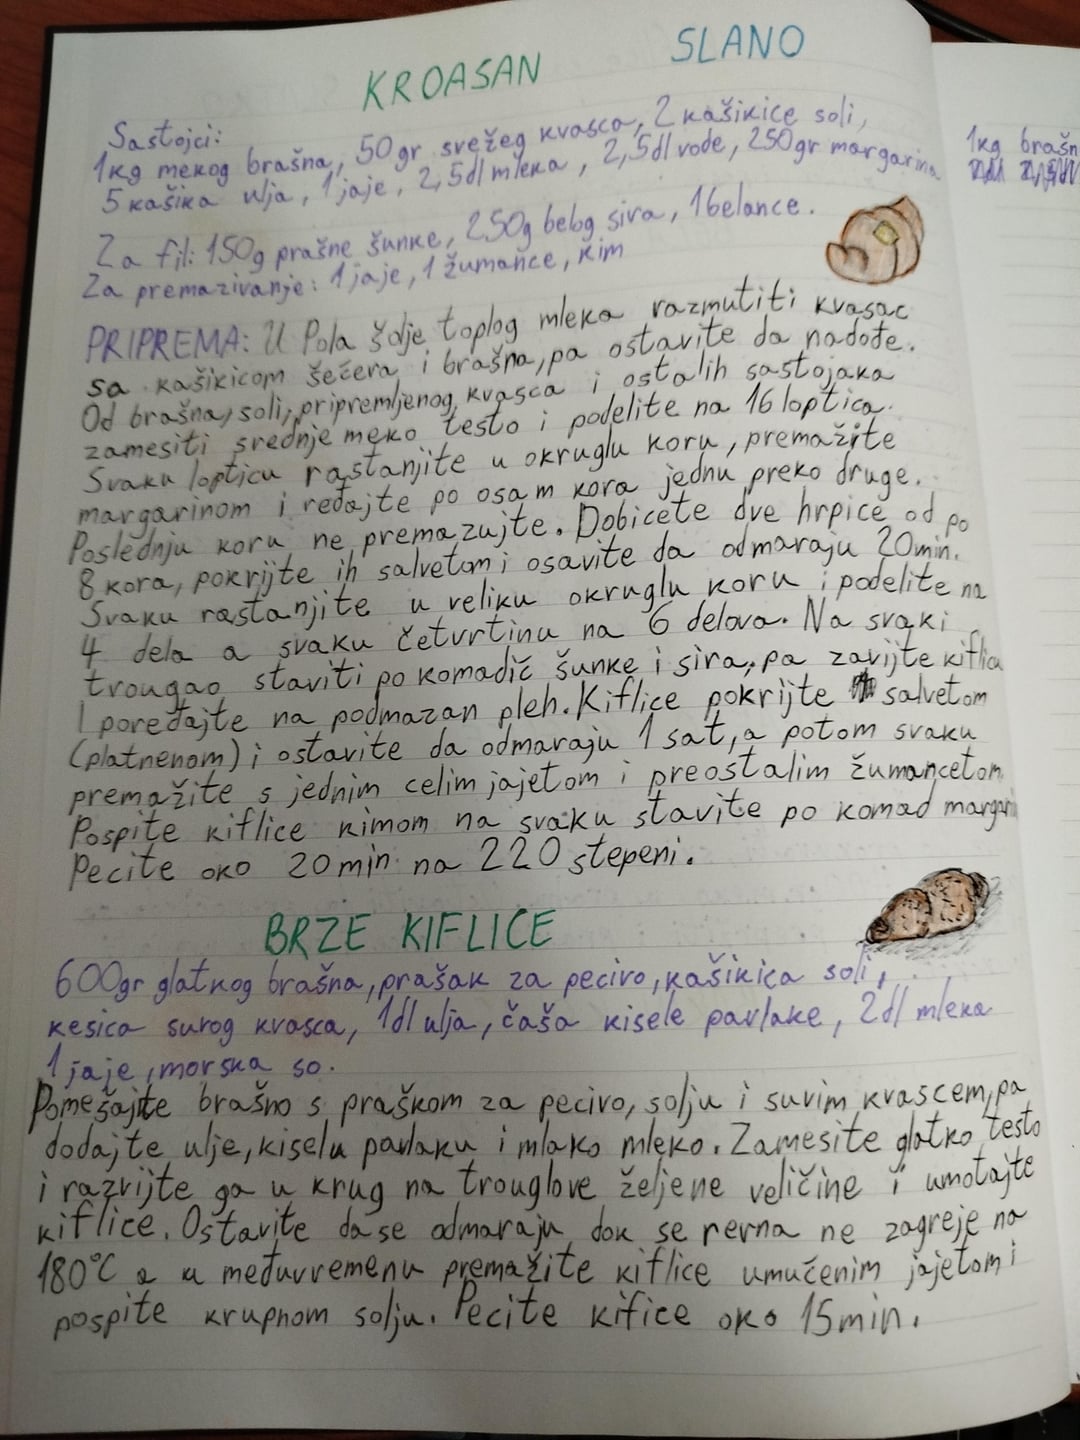 SLANO
KROASAN
Sastojci:
1kg mekog brašna, 50gr svežeg kvasca, 2 kašikice soli,
5 kašika ulja, 1 jaje, 2,5dl mleka, 2,5dl vode, 250gr margarina
Za fil: 150g prašne šunke, 250g belog sira, 1 belance.
Za premazivanje: 1 jaje, 1 žumance, kim
PRIPREMA: U Pola šolje toplog mleka razmutiti kvasac
sa kašikicom šećera i brašna, pa ostavite da nadođe.
Od brašna, soli, pripremljenog kvasca i ostalih sastojaka
zamesiti srednje meko testo i podelite na 16 loptica.
Svaku lopticu rastanjite u okruglu koru, premažite
margarinom i ređajte po osam kora jednu preko druge.
Poslednju koru ne premazujte. Dobicete dve hrpice od po
8 kora, pokrijte ih salvetom i osavite da odmaraju 20min.
Svaku rastanjite u veliku okruglu koru i podelite na
4 dela a svaku četvrtinu na 6 delova. Na svaki
trougao staviti po komadić šunke i sira, pa zavijte kiflicu
I poređajte na podmazan pleh. Kiflice pokrijte salvetom
(platnenom) i ostavite da odmaraju 1 sat, a potom svaku
premažite s jednim celim jajetom i preostalim žumancetom
Pospite kiflice kimom na svaku stavite po komad
Pecite oko 20min na 220 stepeni.
BRZE KIFLICE
600gr glatkog brašna, prašak za pecivo, kašikica soli,
kesica suvog kvasca, 1dl ulja, čaša kisele pavlake, 2dl mleka
1 jaje, morska so.
Pomešajte brašno s praškom za pecivo, solju i suvim kvascem, pa
dodajte ulje, kiselu pavlaku i mlako mleko. Zamesite glatko testo
i razvijte ga u krug na trouglove željene veličine i umotajte
kiflice. Ostavite da se odmaraju dok se rerna ne zagreje na
180°C a u međuvremenu premažite kiflice umućenim jajetom i
pospite krupnom solju. Pecite kifice oko 15min.
1kg